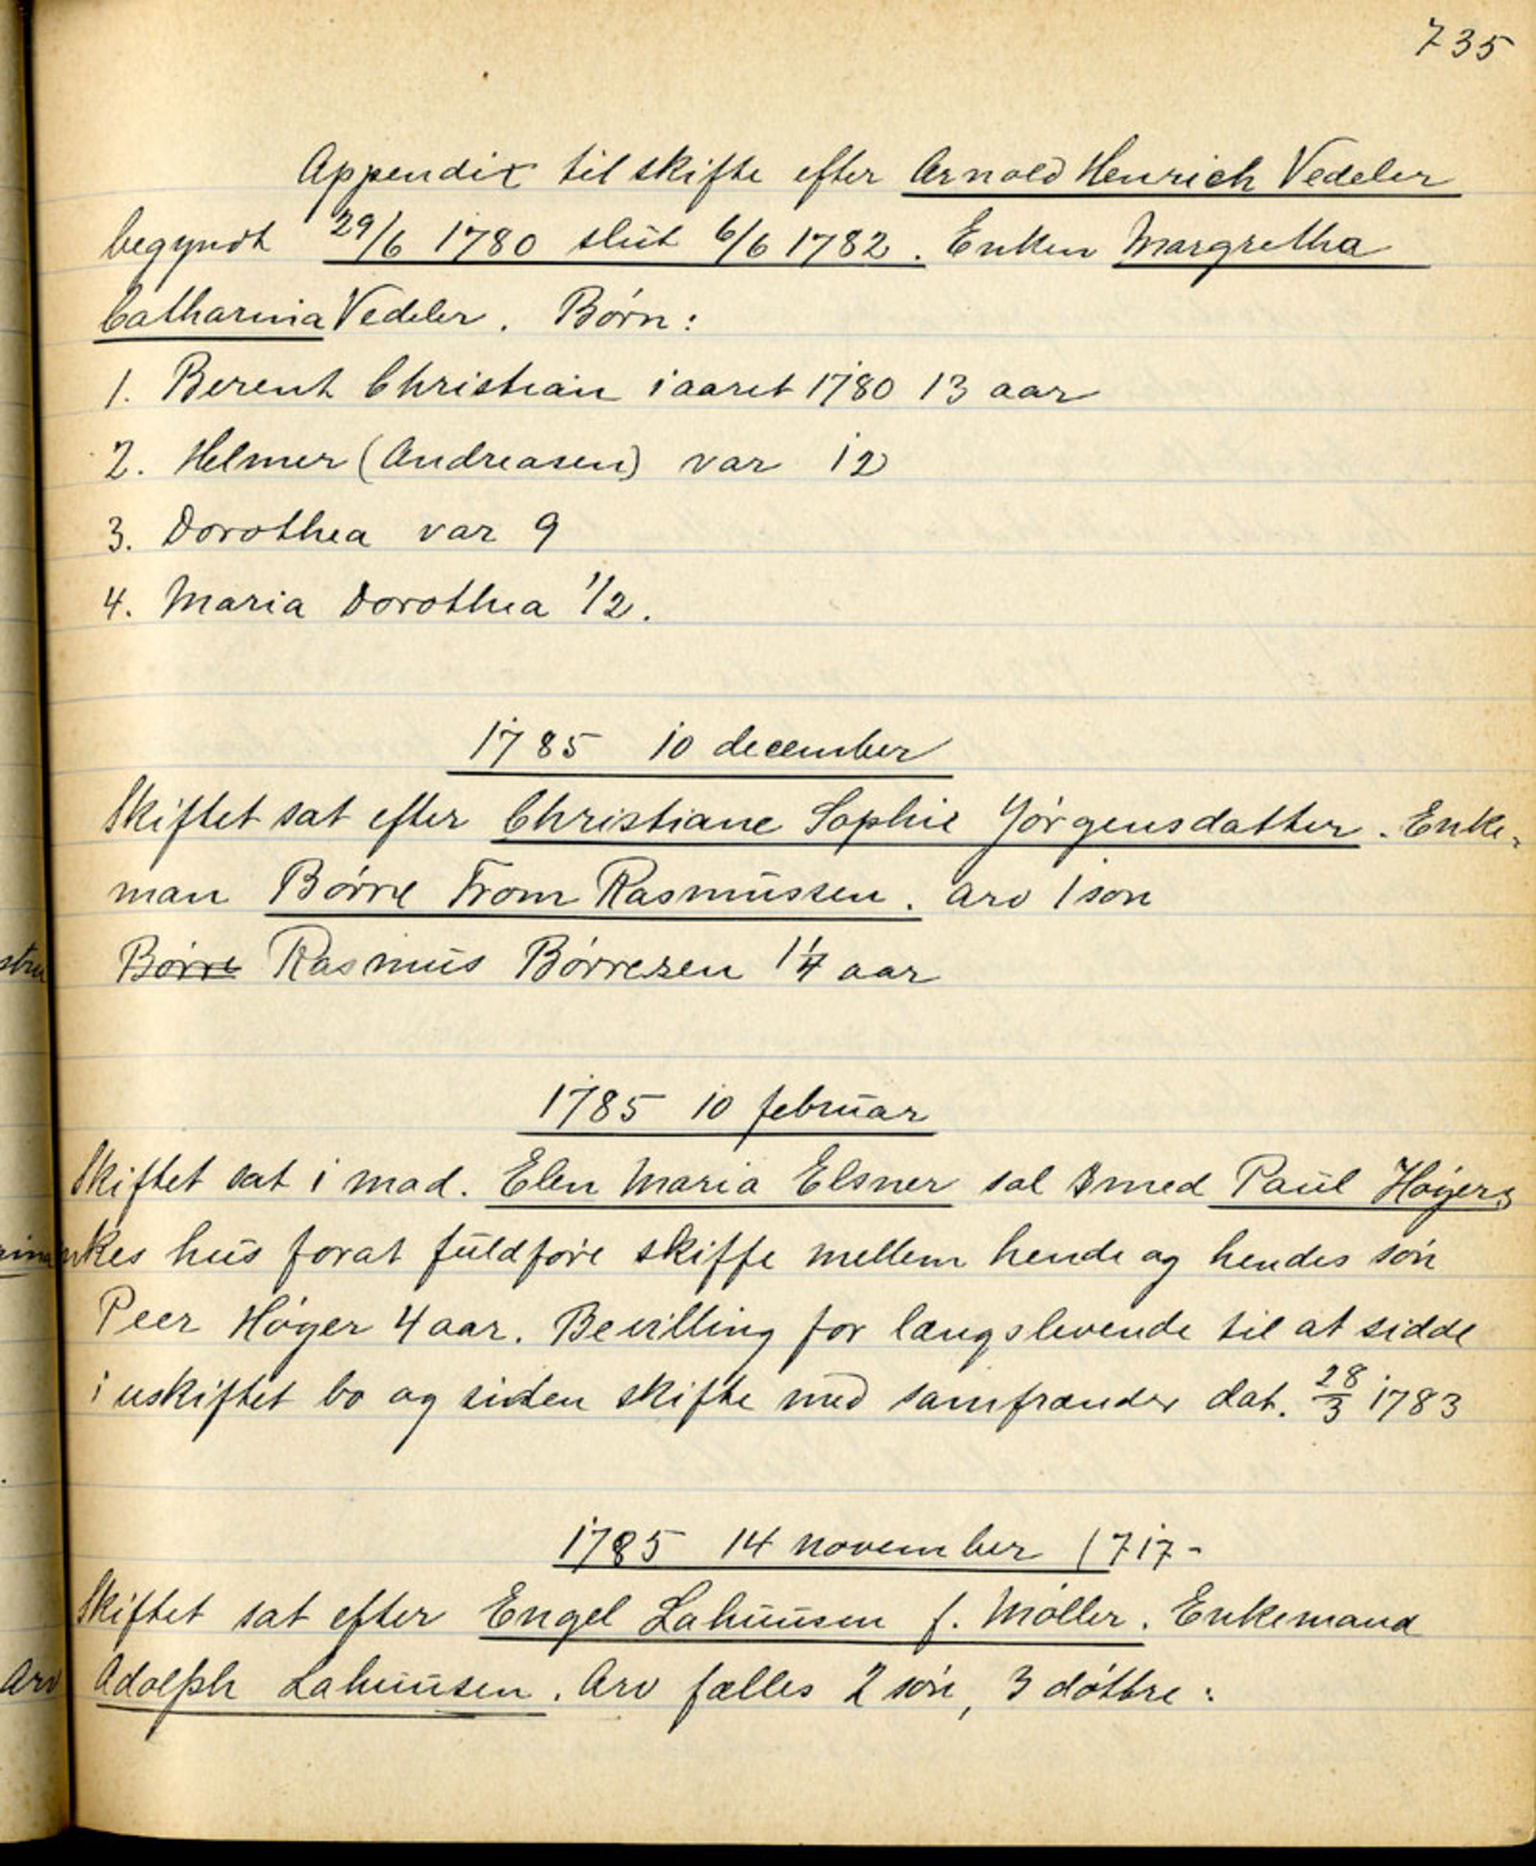 735
Appendix til skifte efter Arnold Henrich Vedeler
begyndt 29/6 1780 slut 6/6 1782. Enken Margretha
Catharina Vedeler. Børn:
1. Berent Christian i aaret 1780 13 aar
2. Helmer (Andreasen) var 12
3. Dorothea var 9
4. Maria Dorothea 1/2.
1785 10 december
Skiftet sat efter Christiane Sophie Jörgensdatter. Enke-
man Börre From Rasmussen. Arv 1 sön
Börre Rasmus Börresen 1 1/4 aar
1785 10 februar
Skiftet sat i mad. Elen Maria Elsner sal Smed Paul Höyers
nkes hus forat fuldføre skifte mellem hende og hendes sön
Peer Höyer 4 aar. Bevilling for længslevende til at sidde
i uskiftet bo og siden skifte med samfrænder dat. 28/3 1783
1785 14 november (717-
Skiftet sat efter Engel Lahuusen f. Möller. Enkemand
Adolph Lahuusen. Arv fælles 2 sön, 3 döttre: